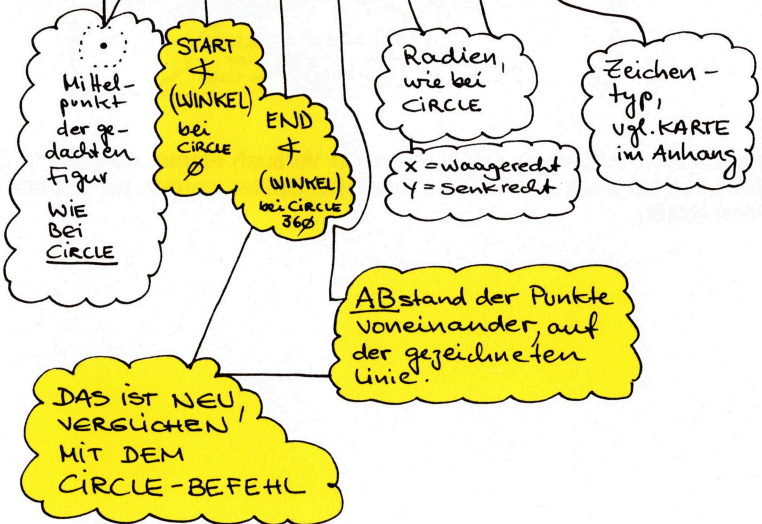 Mittel-
punkt
der ge-
dachten
Figur
WIE
Bei
CiRCLE
START
∢
(WiNKEL)
bei
CiRCLE
Ø
END
∢
(WiNKEL)
bei CiRCLE
36Ø
Radien,
wie bei
CiRCLE
x = waagerecht
Y = Senkrecht
Zeichen-
typ,
vgl. KARTE
im Anhang
ABstand der Punkte
voneinander, auf
der gezeichneten
Linie.
DAS iST NEU,
VERGLiCHEN
MiT DEM
CiRCLE-BEFEHL